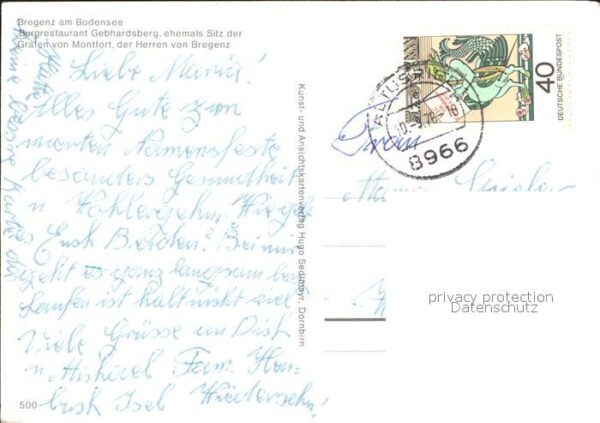 Bregenz am Bodensee
Burgrestaurant Gebhardsberg, ehemals Sitz der
Grafen von Montfort, der Herren von Bregenz
Liebe Maria!
Alles Gute zum
Namensfeste
besonders Gesundheit
u Wohlergehn. Wie geht
es Euch Beiden? Bei mir
geht es ganz langsam
laufen ist halt nicht viel
Viele Grüsse an Dich
u Fam.
Wiedersehn!
Hatte
keine Karte da
500
Kunst- und Ansichtskartenverlag Hugo Sedlmayr, Dornbirn
40
DEUTSCHE BUNDESPOST
8966
Frau
privacy protection
Datenschutz